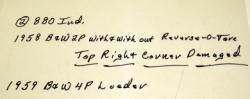 ② 880 Ind.
1958 B&W 2P with & without Reverse-O-Torc
Top Right Corner Damaged
1959 B&W 4P Loader